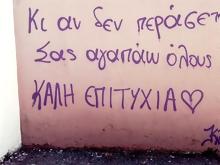 Κι αν δεν περάσετ
Σας αγαπάω όλους
ΚΑΛΗ ΕΠΙΤΥΧΙΑ♡